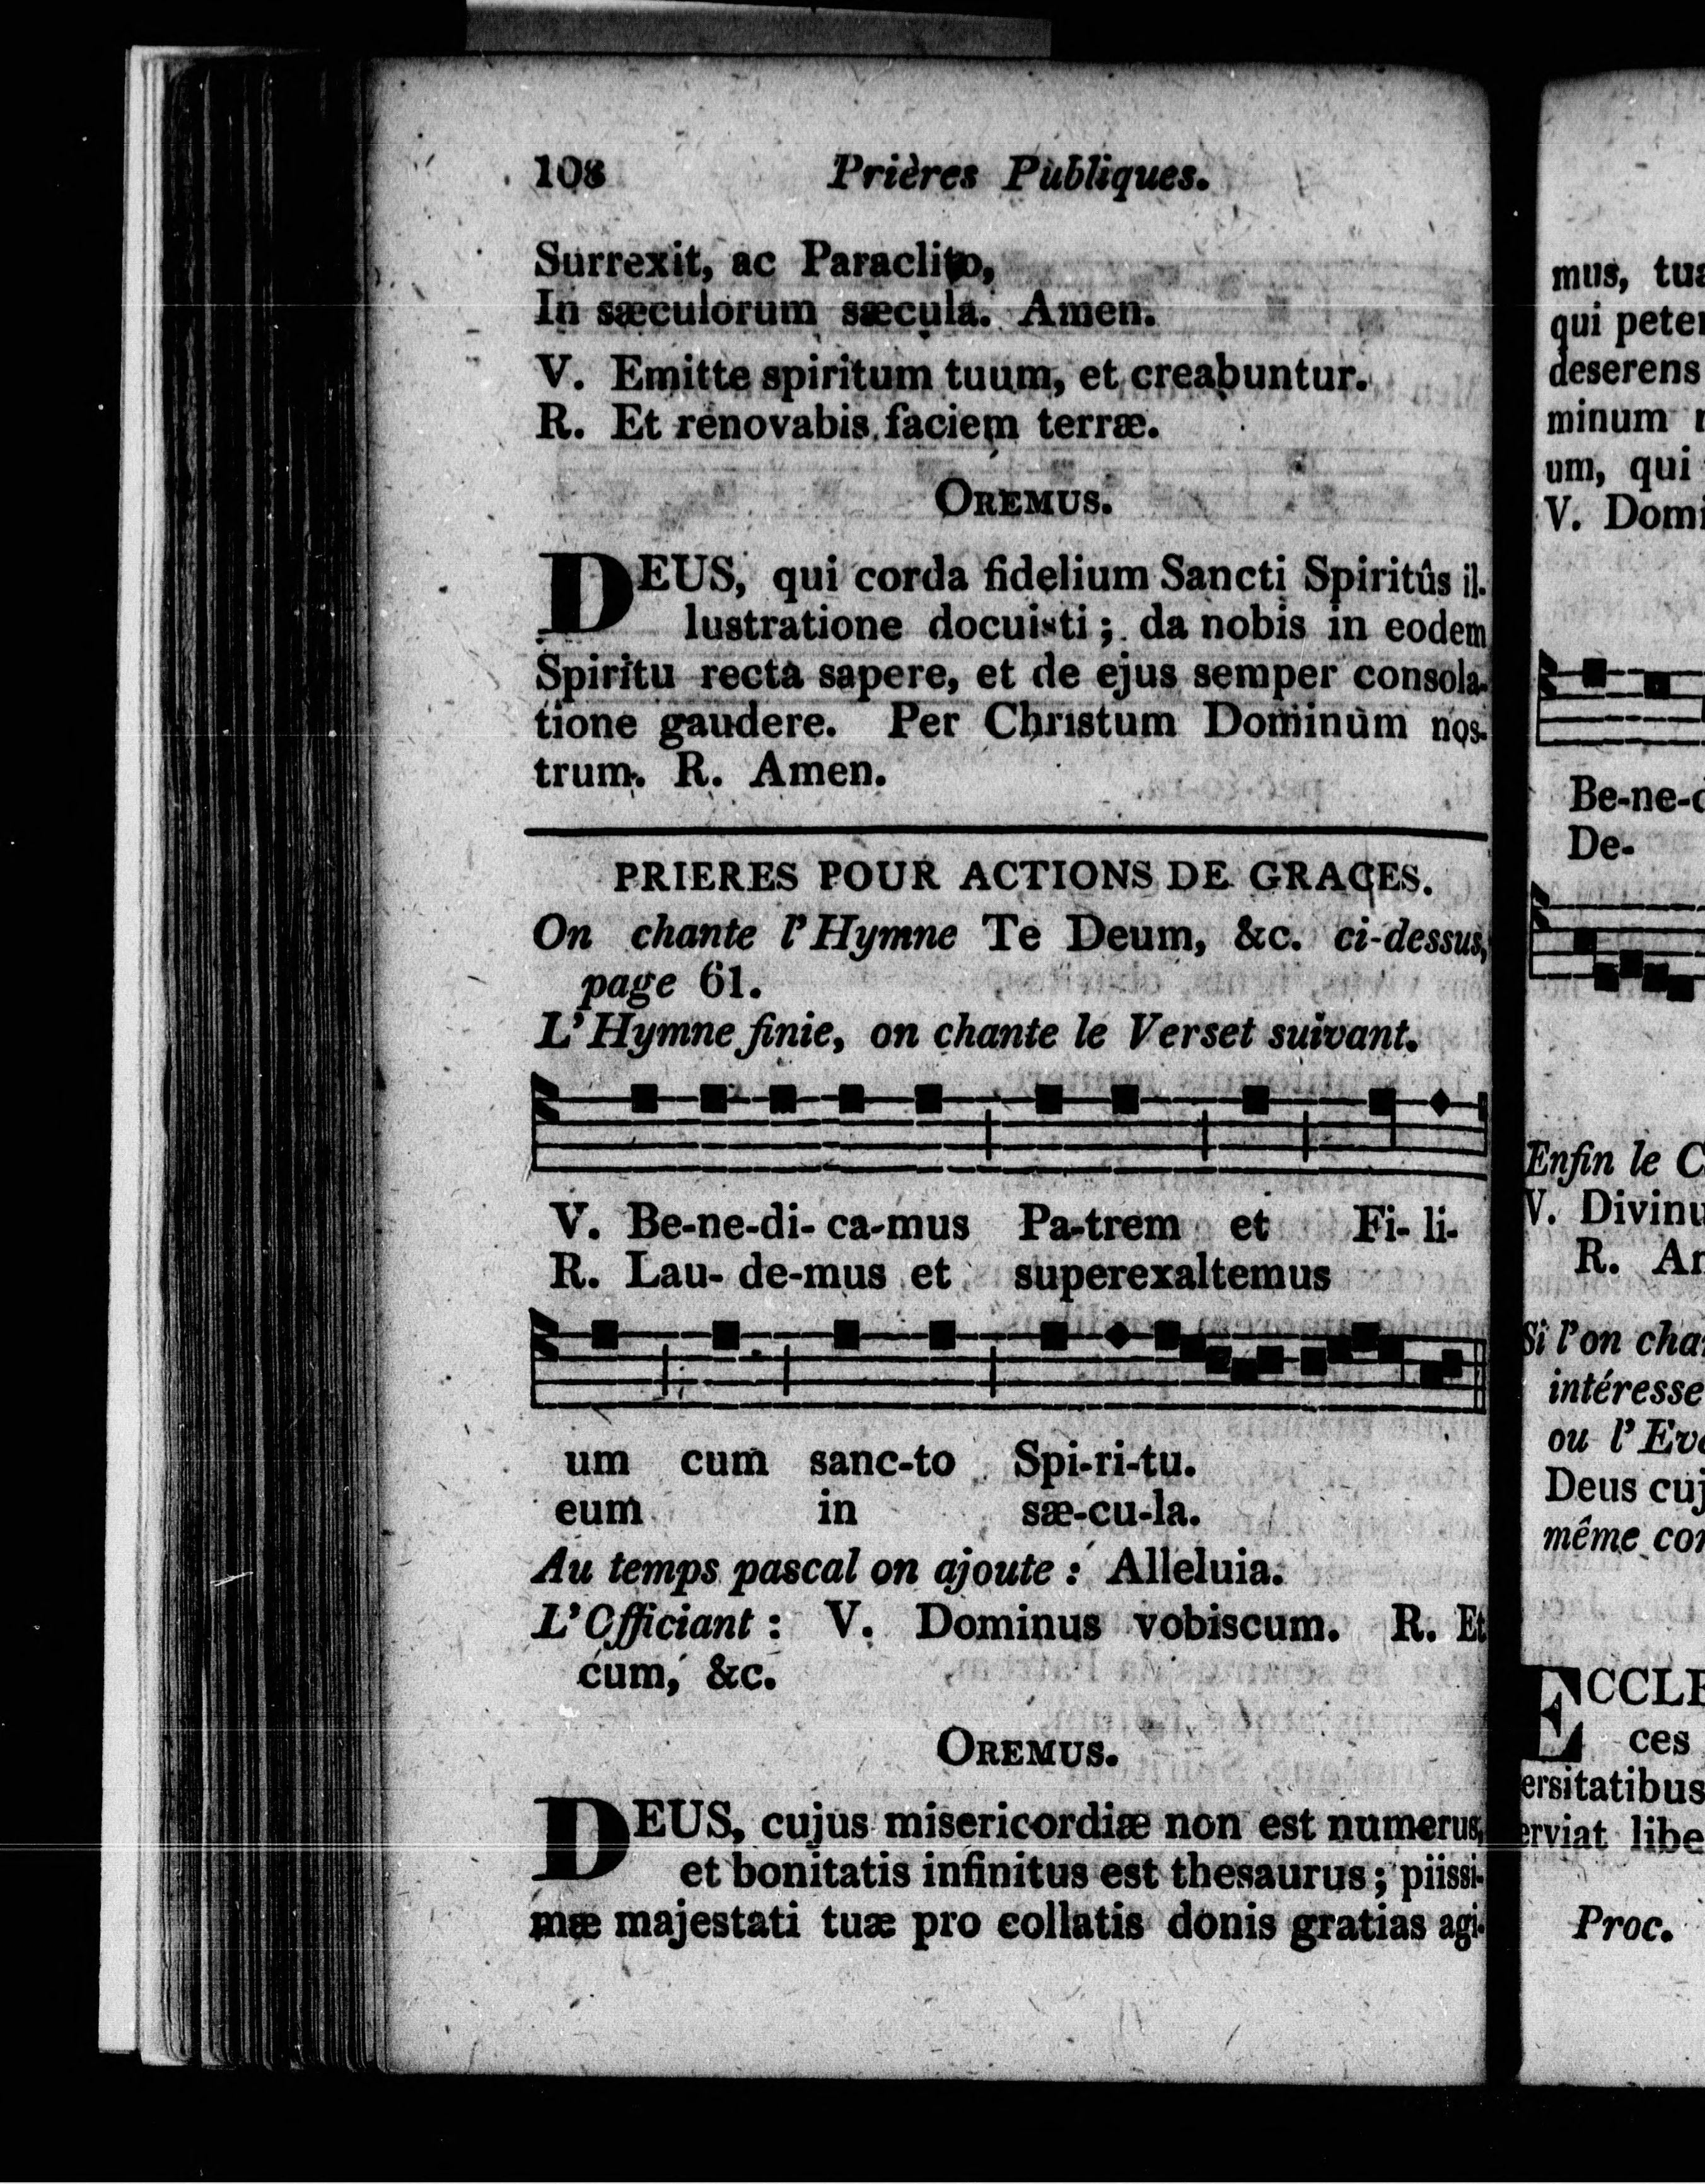 108 Prières Publiques.
Surrexit, ac Paraclito,
In sæculorum sæcula. Amen.
V. Emitte spiritum tuum, et creabuntur.
R. Et renovabis faciem terræ.
OREMUS.
DEUS, qui corda fidelium Sancti Spiritûs il-
lustratione docuisti; da nobis in eodem
Spiritu recta sapere, et de ejus semper consola-
tione gaudere. Per Christum Dominum nos-
trum. R. Amen.
PRIERES POUR ACTIONS DE GRACES.
On chante l'Hymne Te Deum, &c. ci-dessus,
page 61.
L'Hymne finie, on chante le Verset suivant.
V. Be-ne-di- ca-mus Pa-trem et Fi- li-
R. Lau- de-mus et superexaltemus
um cum sanc-to Spi-ri-tu.
eum in sæ-cu-la.
Au temps pascal on ajoute : Alleluia.
L'Officiant : V. Dominus vobiscum. R. Et
cum, &c.
OREMUS.
DEUS, cujus misericordiæ non est numerus,
et bonitatis infinitus est thesaurus; piissi-
mæ majestati tuæ pro collatis donis gratias agi-
mus, tua
qui peter
deserens
minum
um, qui
V. Domi
Be-ne-d
De-
Enfin le C
V. Divinu
R. Am
Si l'on chan
intéresse
ou l'Evê
Deus cuj
même con
ECCLE
ces
ersitatibus
erviat libe
Proc.